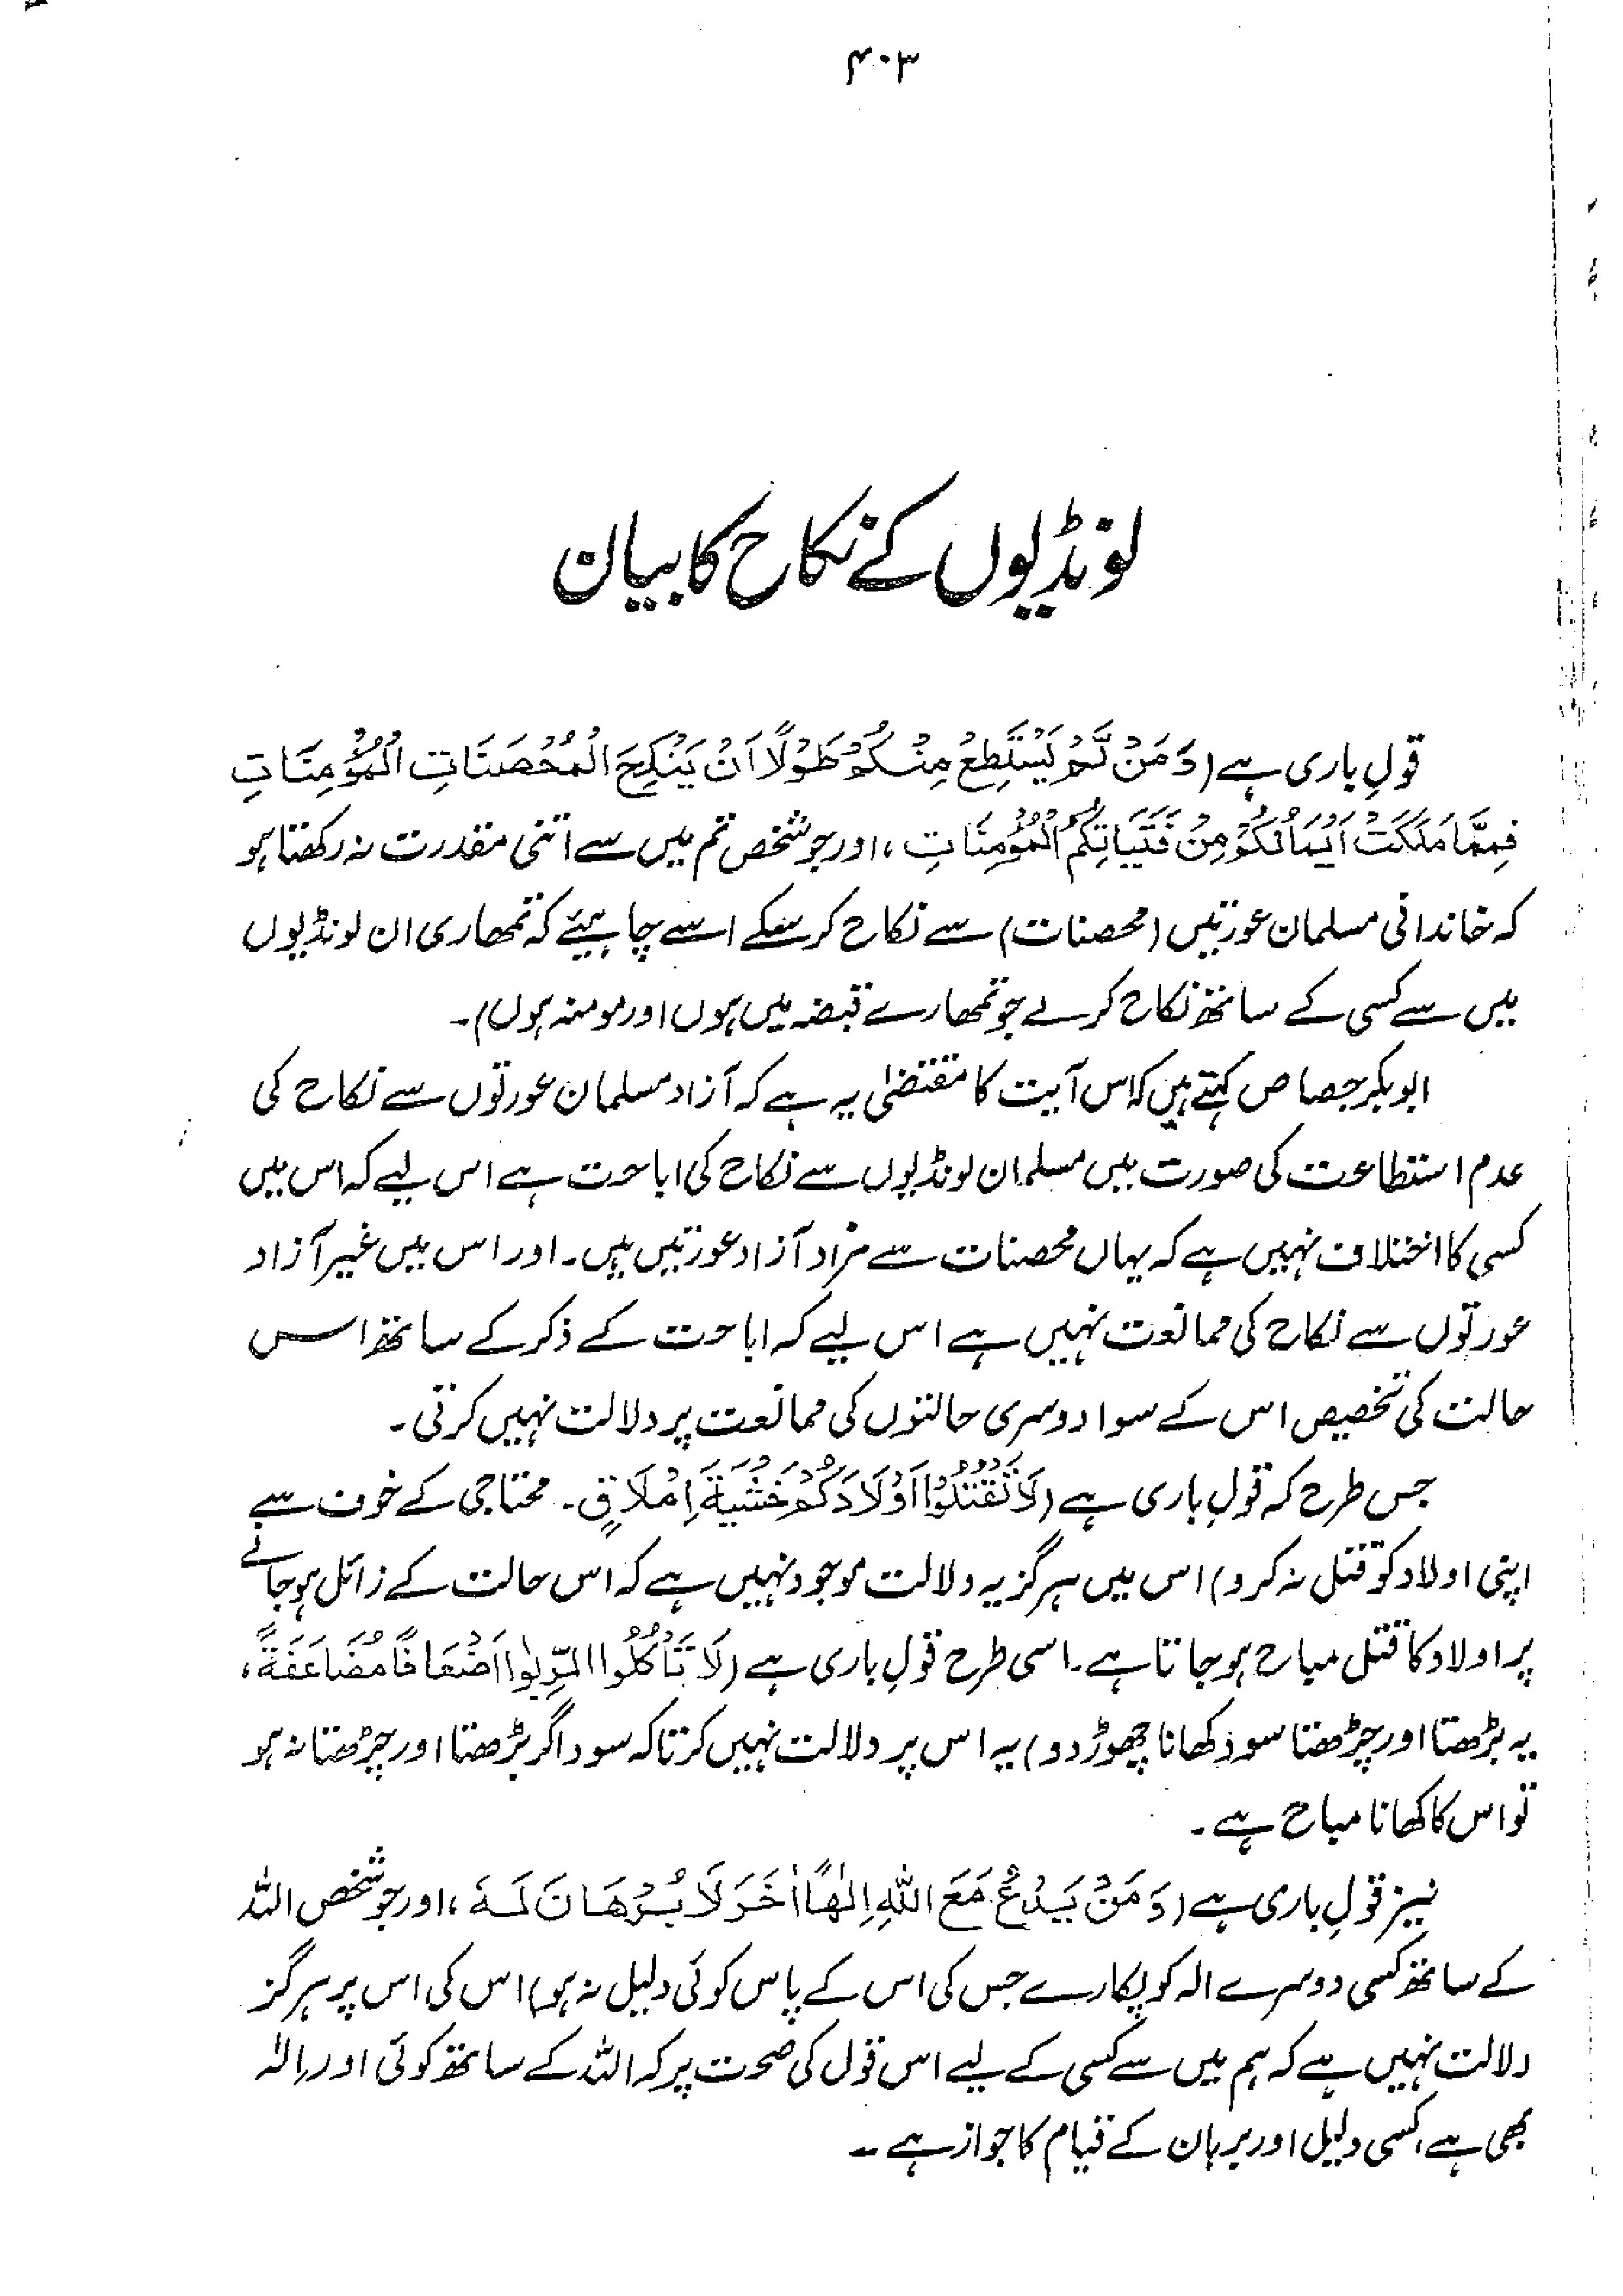 ۴۰۳
لونڈیوں کے نکاح کا بیان
قولِ باری ہے (وَمَنْ لَّمْ يَسْتَطِعْ مِنْكُمْ طَوْلًا اَنْ يَنْكِحَ الْمُحْصَنَاتِ الْمُؤْمِنَاتِ
فَمِمَّا مَلَكَتْ اَيْمَانُكُمْ مِنْ فَتَيَاتِكُمُ الْمُؤْمِنَاتِ، اور جو شخص تم میں سے اتنی مقدرت نہ رکھتا ہو
کہ خاندانی مسلمان عورتیں (محصنات) سے نکاح کر سکے اسے چاہیئے کہ تمھاری ان لونڈیوں
میں سے کسی کے ساتھ نکاح کر لے جو تمھارے قبضہ میں ہوں اور مومنہ ہوں)۔
ابو بکر جصاص کہتے ہیں کہ اس آیت کا مقتضیٰ یہ ہے کہ آزاد مسلمان عورتوں سے نکاح کی
عدم استطاعت کی صورت میں مسلمان لونڈیوں سے نکاح کی اباحت ہے اس لیے کہ اس میں
کسی کا اختلاف نہیں ہے کہ یہاں محصنات سے مراد آزاد عورتیں ہیں۔ اور اس میں غیر آزاد
عورتوں سے نکاح کی ممانعت نہیں ہے اس لیے کہ اباحت کے ذکر کے ساتھ اس
حالت کی تخصیص اس کے سوا دوسری حالتوں کی ممانعت پر دلالت نہیں کرتی۔
جس طرح کہ قولِ باری ہے (لَا تَقْتُلُوْا اَوْلَادَكُمْ خَشْيَةَ اِمْلَاقٍ۔ محتاجی کے خوف سے
اپنی اولاد کو قتل نہ کرو) اس میں ہرگز یہ دلالت موجود نہیں ہے کہ اس حالت کے زائل ہو جانے
پر اولاد کا قتل مباح ہو جاتا ہے۔ اسی طرح قولِ باری ہے (لَا تَأْكُلُوا الرِّبٰوا اَضْعَافًا مُضَاعَفَةً،
یہ بڑھتا اور چڑھتا سود کھانا چھوڑ دو) یہ اس پر دلالت نہیں کرتا کہ سود اگر بڑھتا اور چڑھتا نہ ہو
تو اس کا کھانا مباح ہے۔
نیز قولِ باری ہے (وَمَنْ يَدْعُ مَعَ اللّٰهِ اِلٰهًا اٰخَرَ لَا بُرْهَانَ لَهٗ، اور جو شخص اللہ
کے ساتھ کسی دوسرے الٰہ کو پکارے جس کی اس کے پاس کوئی دلیل نہ ہو) اس کی اس پر ہرگز
دلالت نہیں ہے کہ ہم میں سے کسی کے لیے اس قول کی صحت پر کہ اللہ کے ساتھ کوئی اور اِلٰہ
بھی ہے، کسی دلیل اور برہان کے قیام کا جواز ہے ۔